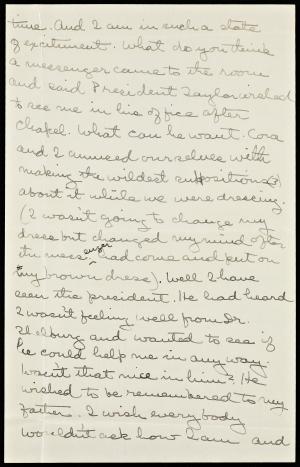 time. And I am in such a state
of excitement. What do you think
a messenger came to the room
and said President Taylor wished
to see me in his office after
chapel. What can he want. Cora
and I amused ourselves with
making the wildest suppositions(?)
about it while we were dressing.
(I wasn't going to change my
dress but changed my mind after
the messenger had come and put on
my brown dress). Well I have
seen the president. He had heard
I wasn't feeling well from Dr.
Thelburg and wanted to see if
he could help me in any way.
Wasn't that nice in him? He
wished to be remembered to my
father. I wish everybody
wouldn't ask how I am and